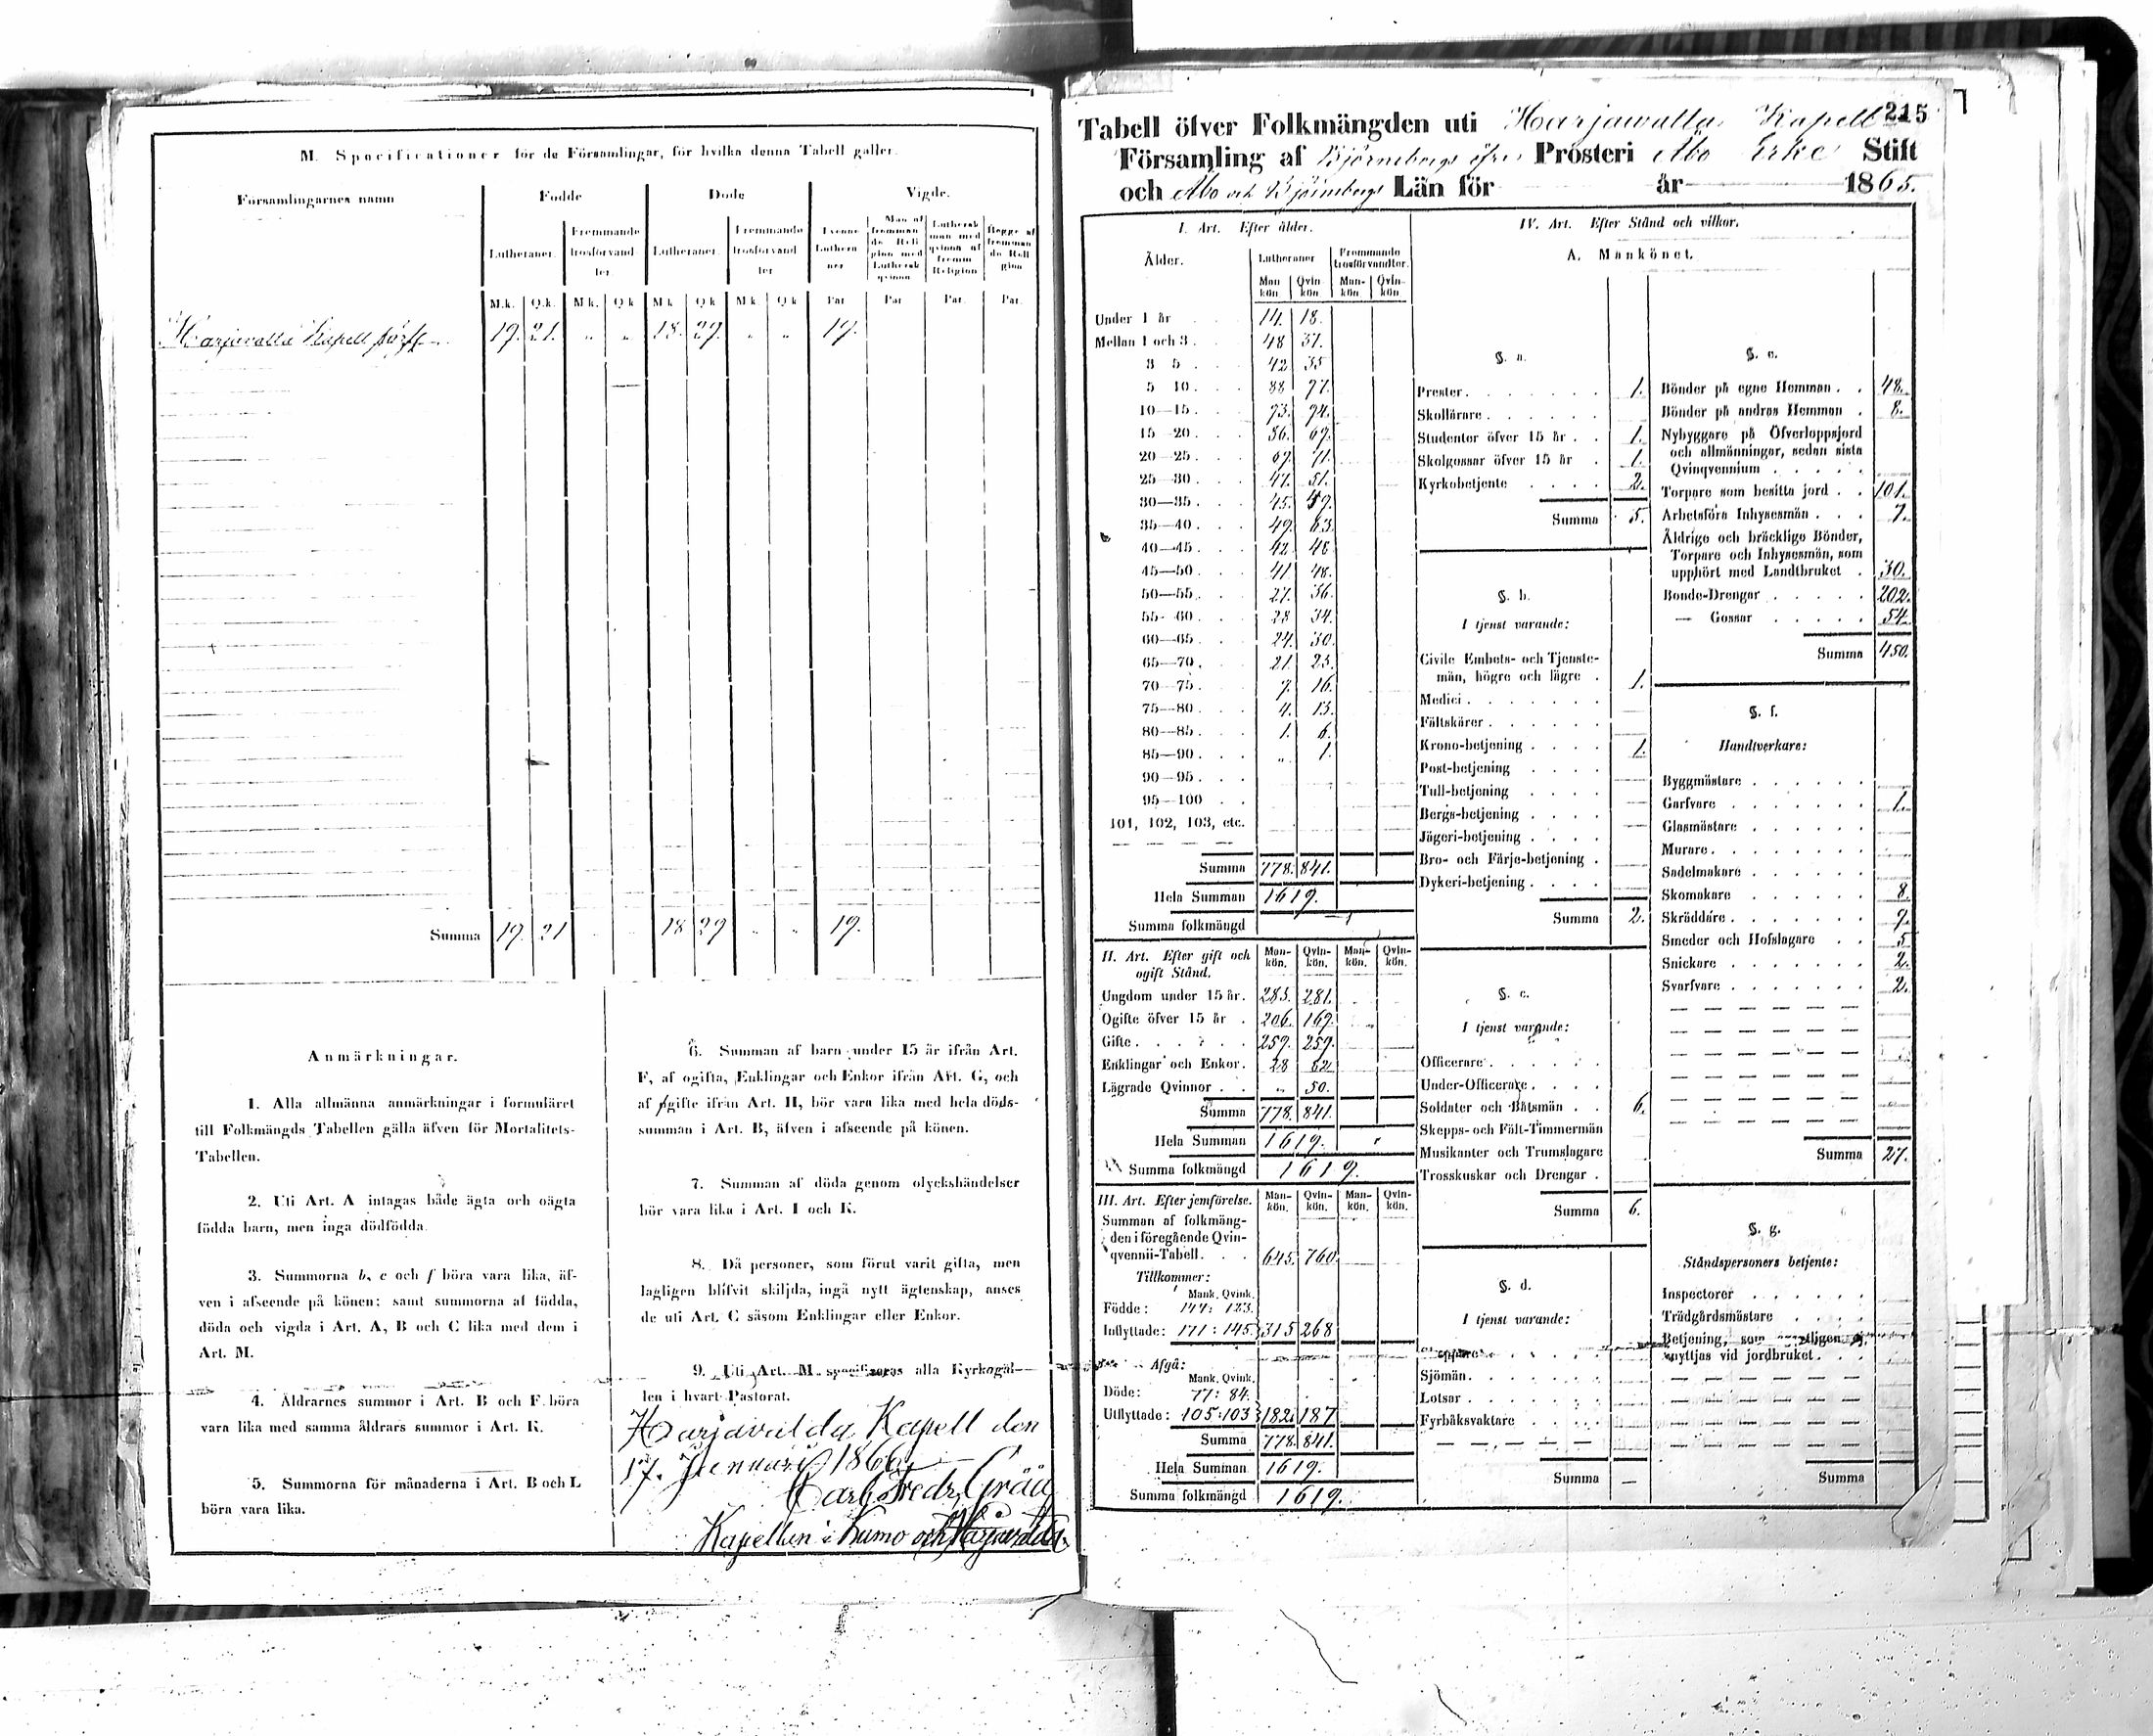 M. Specificationer för de Församlingar, för hvilka denna Tabell gäller.
Församlingarnes namn Födde Döde Vigde.
Lutheraner. Fremmande trosförvandter. Lutheraner. Fremmande trosförvandter. Evenne Lutheraner Man af fremmande Religion med Luthersk qvinna Luthersk man med qvinna af fremm Religion Begge af fremmande Religion
M.k. Q.k. M.k. Q.k M.k Q.k M.k Q.k Par Par Par. Par.
Harjavalla Kapell förs. 19. 21. „ „ 18. 29. „ „ 19.
Summa 19. 21 18 29 „ „ 19.
Anmärkningar.
1. Alla allmänna anmärkningar i formuläret
till Folkmängds Tabellen gälla äfven för Mortalitets-
Tabellen.
2. Uti Art. A intagas både ägta och oägta
födda barn, men inga dödfödda.
3. Summorna b, e och f böra vara lika, äf-
ven i afseende på könen; samt summorna af födda,
döda och vigda i Art. A, B och C lika med dem i
Art. M.
4. Åldrarnes summor i Art. B och F böra
vara lika med samma åldrars summor i Art. K.
5. Summorna för månaderna i Art. B och L
böra vara lika.
6. Summan af barn under 15 år ifrån Art.
F, af ogifta, Enklingar och Enkor ifrån Art. G, och
af gifte ifrån Art. H, bör vara lika med hela döds-
summan i Art. B, äfven i afseende på könen.
7. Summan af döda genom olyckshändelser
bör vara lika i Art. I och K.
8. Då personer, som förut varit gifta, men
lagligen blifvit skiljda, ingå nytt ägtenskap, anses
de uti Art. C såsom Enklingar eller Enkor.
9. Uti Art. M specificeras alla Kyrkogäl-
len i hvart Pastorat.
Harjavalda Kapell den
17. Januarij 1866.
Carl Fredr. Gråå
Kapellan i Kumo och Harjavalda.
215
Tabell öfver Folkmängden uti Harjawalla Kapell
Församling af Björneborgs öfre Prosteri Åbo Erke Stift
och Åbo och Björneborgs Län för år 1865.
I. Art. Efter ålder.
Ålder. Lutheraner Fremmande trosförvandter.
Man kön Qvin kön Man-kön Qvin-kön
Under 1 år 14. 18.
Mellan 1 och 3 48 37.
3 5 42 35
5 10 88 97.
10—15 93. 94.
15—20 86. 69.
20—25 69. 71.
25—30 47. 51.
30—35 45. 49.
35—40 49. 63.
40—45 42. 48
45—50 41. 48.
50—55 27. 36.
55—60 28 34.
60—65 24. 30.
65—70 21. 23.
70—75 7. 16.
75—80 4. 13.
80—85 1. 6.
85—90 „ 1.
90—95
95—100
101, 102, 103, etc.
Summa 778. 841.
Hela Summan 1619.
Summa folkmängd
II. Art. Efter gift och ogift Stånd. Man-kön. Qvin-kön. Man-kön. Qvin-kön.
Ungdom under 15 år. 285. 281.
Ogifte öfver 15 år 206. 169.
Gifte 259. 259.
Enklingar och Enkor. 28 82
Lägrade Qvinnor „ 50.
Summa 778. 841.
Hela Summan 1619.
Summa folkmängd 1619.
III. Art. Efter jemförelse. Man-kön. Qvin-kön. Man-kön. Qvin-kön.
Summan af folkmäng-
den i föregående Qvin-
qvennii-Tabell. 645. 760.
Tillkommer:
Mank. Qvink.
Födde: 144: 123.
Inflyttade: 171: 145. 315 268
Afgå:
Mank. Qvink.
Döde: 77: 84.
Utflyttade: 105: 103 182. 187
Summa 778. 841.
Hela Summan 1619.
Summa folkmängd 1619.
IV. Art. Efter Stånd och vilkor.
A. Mankönet.
§. a.
Prester 1.
Skollärare
Studenter öfver 15 år 1.
Skolgossar öfver 15 år 1.
Kyrkobetjente 2.
Summa 5.
§. b.
I tjenst varande:
Civile Embets- och Tjenste-
män, högre och lägre 1.
Medici
Fältskärer
Krono-betjening 1.
Post-betjening
Tull-betjening
Bergs-betjening
Jägeri-betjening
Bro- och Färje-betjening
Dykeri-betjening
Summa 2.
§. c.
I tjenst varande:
Officerare
Under-Officerare
Soldater och Båtsmän 6.
Skepps- och Fält-Timmermän
Musikanter och Trumslagare
Trosskuskar och Drengar
Summa 6.
§. d.
I tjenst varande:
Skeppare
Sjömän
Lotsar
Fyrbåksvaktare
Summa —
§. e.
Bönder på egne Hemman 48.
Bönder på andras Hemman 8.
Nybyggare på Öfverloppsjord
och allmänningar, sedan sista
Qvinqvennium
Torpare som besitta jord 101.
Arbetsföra Inhysesmän 7.
Äldrige och bräcklige Bönder,
Torpare och Inhysesmän, som
upphört med Landtbruket 30.
Bonde-Drengar 202.
— Gossar 54.
Summa 450.
§. f.
Handtverkare:
Byggmästare
Garfvare 1.
Glasmästare
Murare
Sadelmakare
Skomakare 8
Skräddare 9.
Smeder och Hofslagare 5
Snickare 2.
Svarfvare 2.
Summa 27.
§. g.
Ståndspersoners betjente:
Inspectorer
Trädgårdsmästare
Betjening, som egentligen ej
nyttjas vid jordbruket
Summa